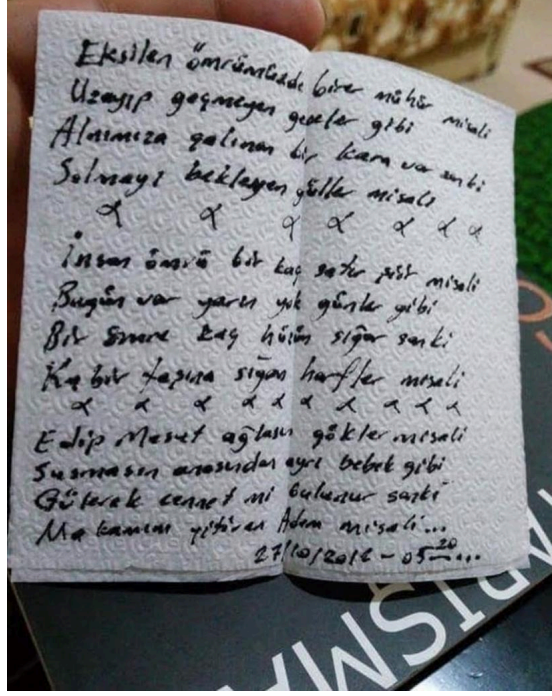 Eksilen ömrümüzde birer mühür misali
Uzayıp geçmeyen geceler gibi
Alnımıza çalınan bir kara var sanki
Solmayı bekleyen güller misali
İnsan ömrü bir kaç satır şiir misali
Bugün var yarın yok günler gibi
Bir ömre kaç hüzün sığar sanki
Kabir taşına sığan harfler misali
Edip Mesut ağlasın gökler misali
Susmasın anasından ayrı bebek gibi
Gülerek cennet mi bulunur sanki
Makamını yitiren Adem misali...
27/10/2012 - 05 20 ...